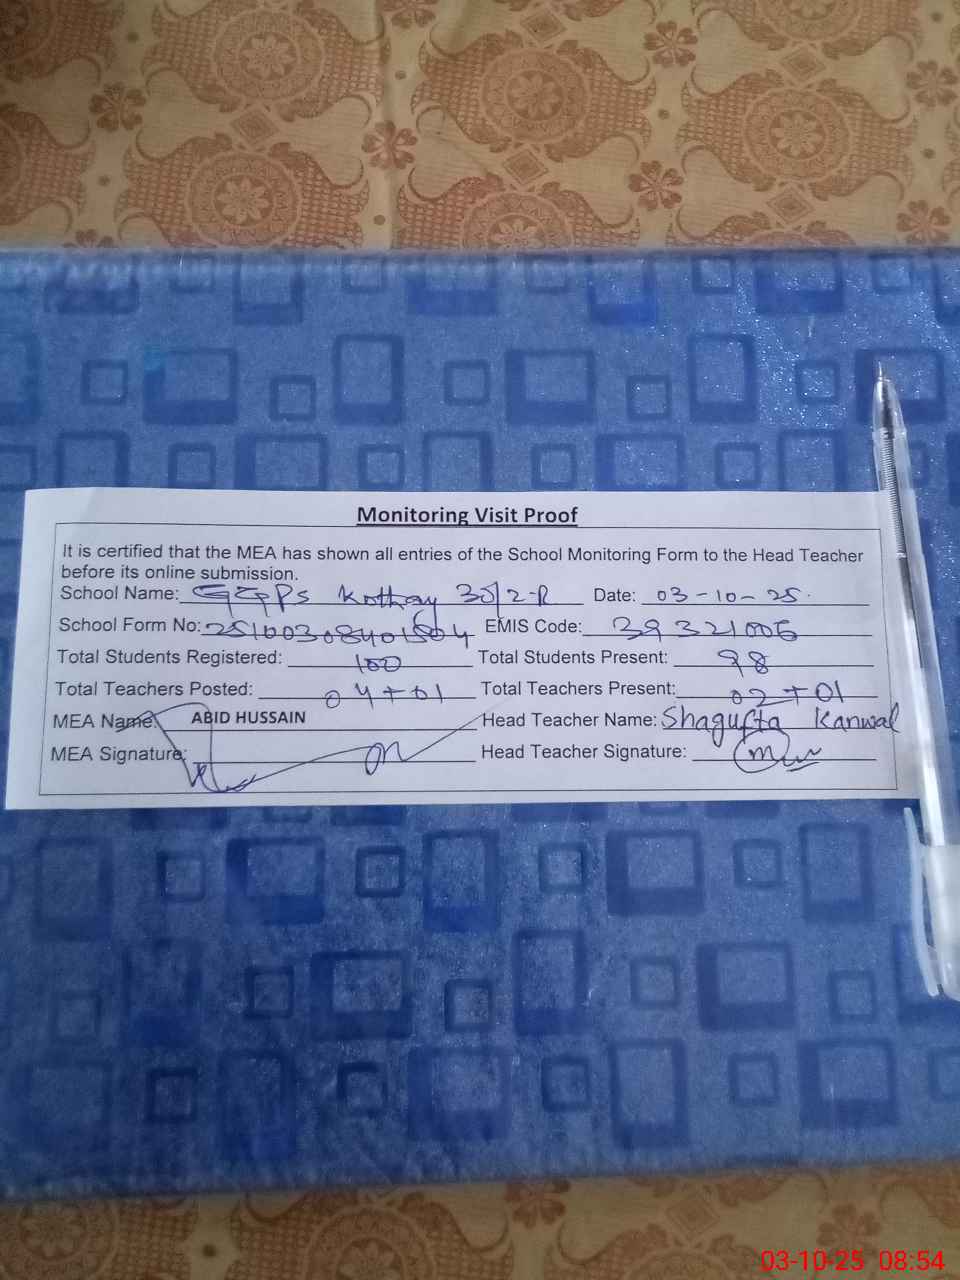 Monitoring Visit Proof
It is certified that the MEA has shown all entries of the School Monitoring Form to the Head Teacher
before its online submission.
School Name: GGPS Kothay 30/2-R Date: 03-10-25.
School Form No: EMIS Code: 39321006
Total Students Registered: 100 Total Students Present: 98
Total Teachers Posted: 04+01 Total Teachers Present: 02+01
MEA Name: ABID HUSSAIN Head Teacher Name: Shagufta Kanwal
MEA Signature: Head Teacher Signature:
03-10-25 08:54